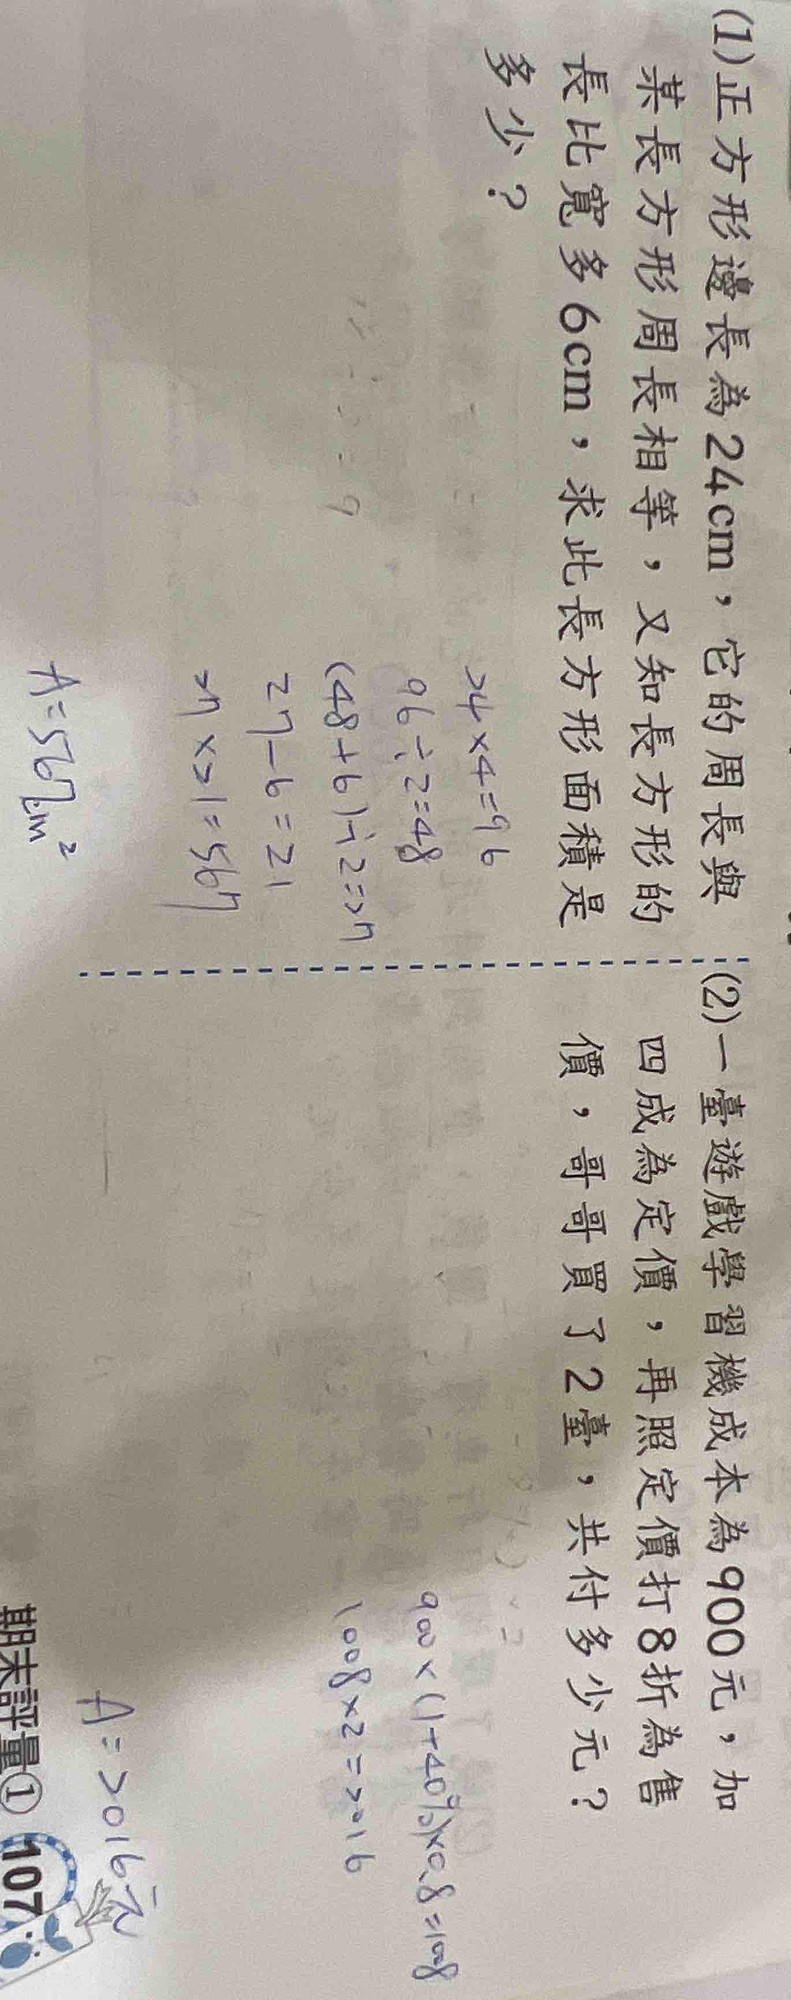 (1)正方形邊長為24cm，它的周長與
某長方形周長相等，又知長方形的
長比寬多6cm，求此長方形面積是
多少？
24×4=96
96÷2=48
(48+6)÷2=27
27-6=21
27×21=567
A=567cm²
(2)一臺遊戲學習機成本為900元，加
四成為定價，再照定價打8折為售
價，哥哥買了2臺，共付多少元？
900×(1+40%)×0.8=1008
1008×2=2016
A=2016元
期末評量① 107